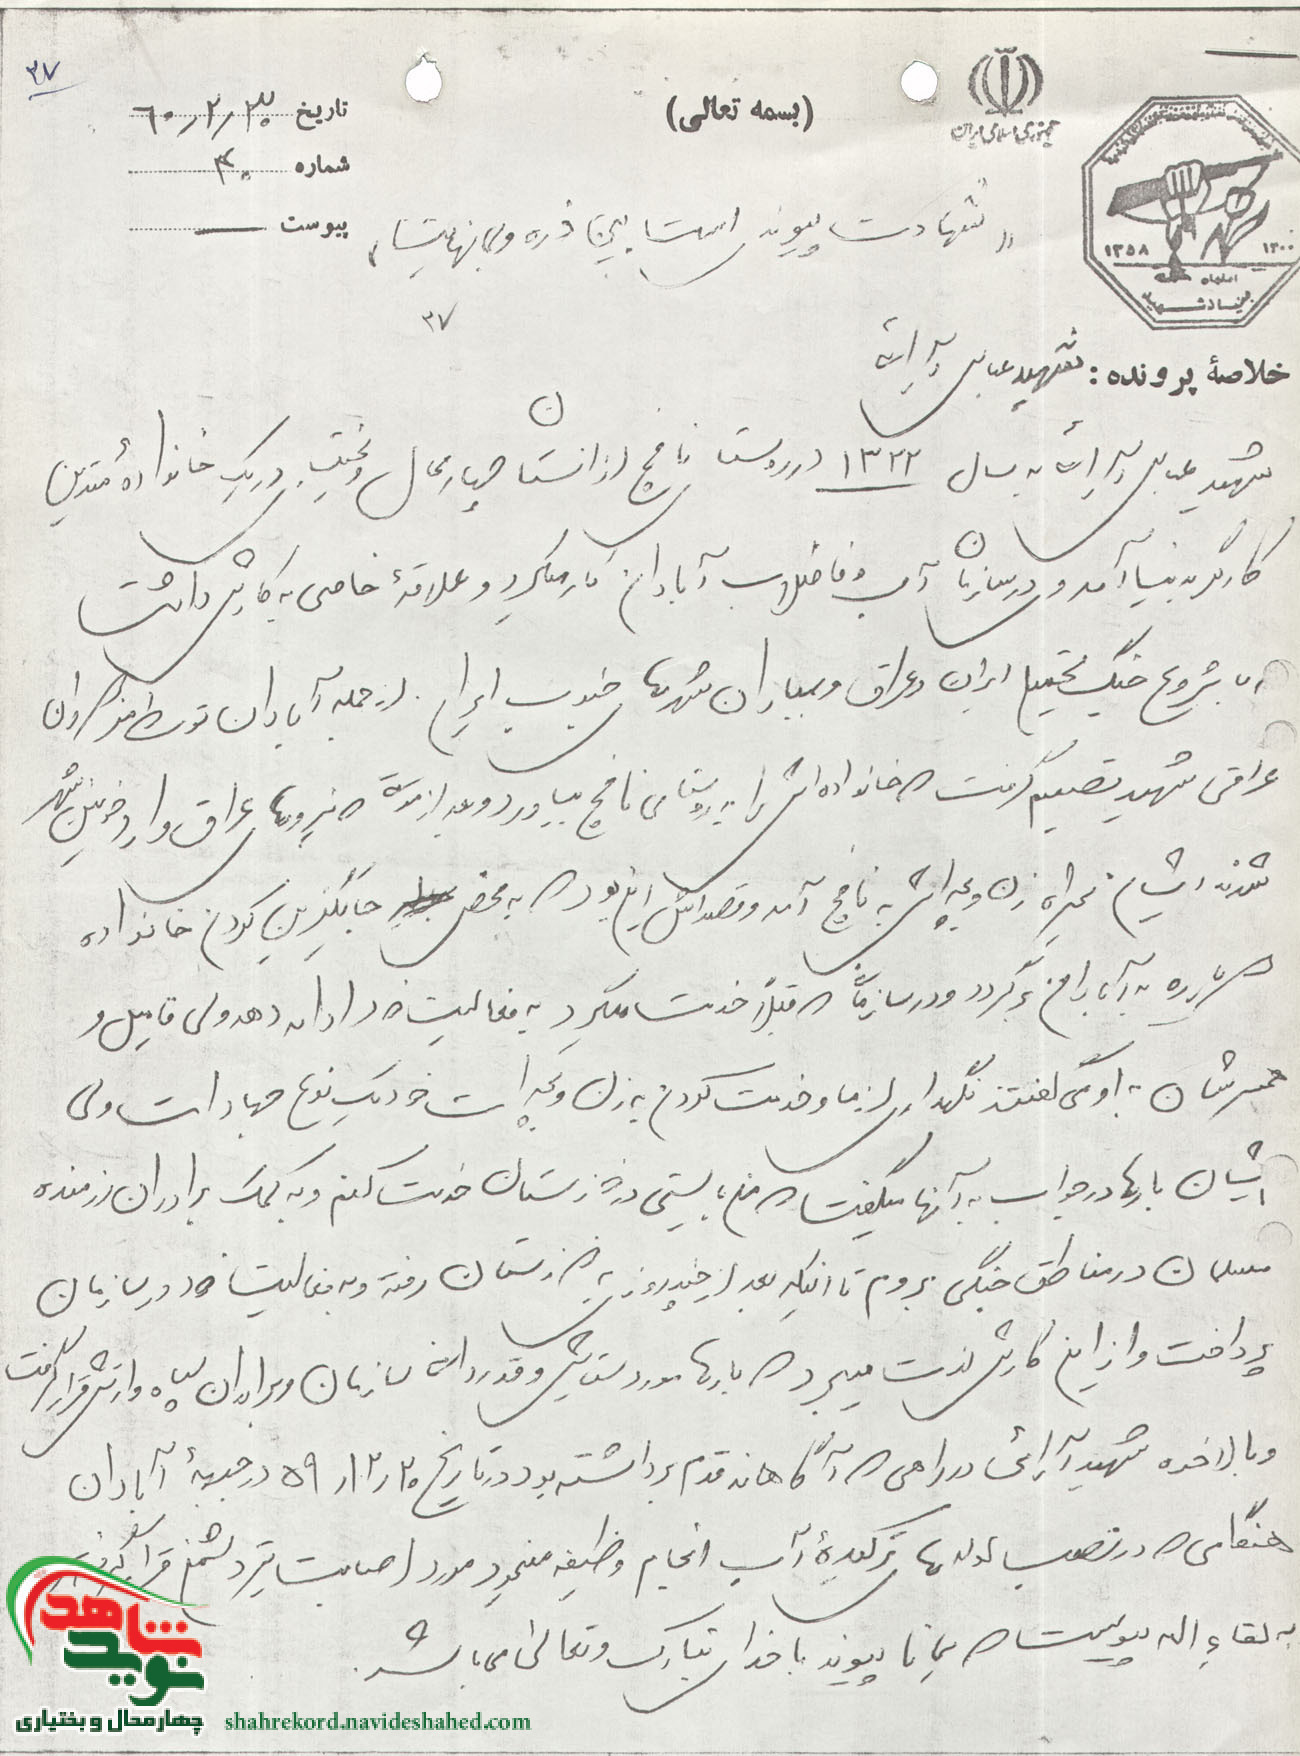 ۳۷
(بسمه تعالی)
جمهوری اسلامی ایران
تاریخ ۶۰/۲/۳۰
شماره ۴۰
پیوست
۱۳۵۸
۱۴۰۰
بنیاد شهید
" شهادت پیوند است بین ذره و بی نهایت "
۳۷
خلاصهٔ پرونده : شهید عباس آرائی
شهید عباس آرائی به سال ۱۳۲۲ در روستا نافچ از استان چهارمحال و بختیاری در یک خانوادهٔ متدین
کارگر بدنیا آمد و در سازمان آب و فاضلاب آبادان کار میکرد و علاقهٔ خاصی به کارش داشت
با شروع جنگ تحمیلی ایران و عراق و بمباران شهرهای جنوب ایران از جمله آبادان توسط مزدوران
عراقی شهید تصمیم گرفت که خانواده اش را به روستای نافچ بیاورد و بعد از مدتی که نیروهای عراق وارد خونین شهر
شدند ایشان همراه زن و بچه اش به نافچ آمد و قصداش این بود که به محض جایگزین کردن خانواده
که دوباره به آبادان برگردد و در سازمان که قبلاً خدمت میکرد به فعالیت خود ادامه دهد ولی فامیل و
همسرشان به او می گفتند نگهداری از ما و خدمت کردن به زن و بچه ات خود یک نوع جهاد است ولی
ایشان بارها در جواب به آنها میگفت که من بایستی در خوزستان خدمت کنم و به کمک برادران رزمنده
مسلمان در مناطق جنگی بروم تا اینکه بعد از چند روز به خوزستان رفته و به فعالیت خود در سازمان
پرداخت و از این کارش لذت میبرد که بارها مورد ستایش و قدردانی سازمان و برادران سپاه و ارتش قرار گرفت
و بالاخره شهید آرائی در راهی که آگاهانه قدم برداشته بود در تاریخ ۵۹/۱۲/۲۰ در جبههٔ آبادان
هنگامی که در نصب لوله ها ترکیدهٔ آب انجام وظیفه مینمود مورد اصابت تیر دشمن قرار گرفت
به لقاء اله پیوست که همانا پیوند با خدای تبارک و تعالی می باشد.
نوید شاهد
چهارمحال و بختیاری
shahrekord.navideshahed.com